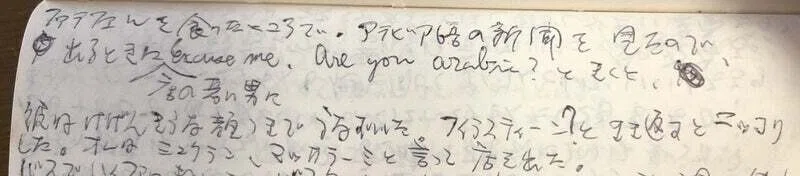 ファラフェルを食ったところで。アラビア語の新聞を見るので、
出るときに excuse me. Are you arabic? ときくと、
店の若い男に
彼はけげんそうな顔つきでうなずいた。フィラスティーン?とき返すとニッコリ
した。私はシュクラン、マッサラーミと言って店を出た。